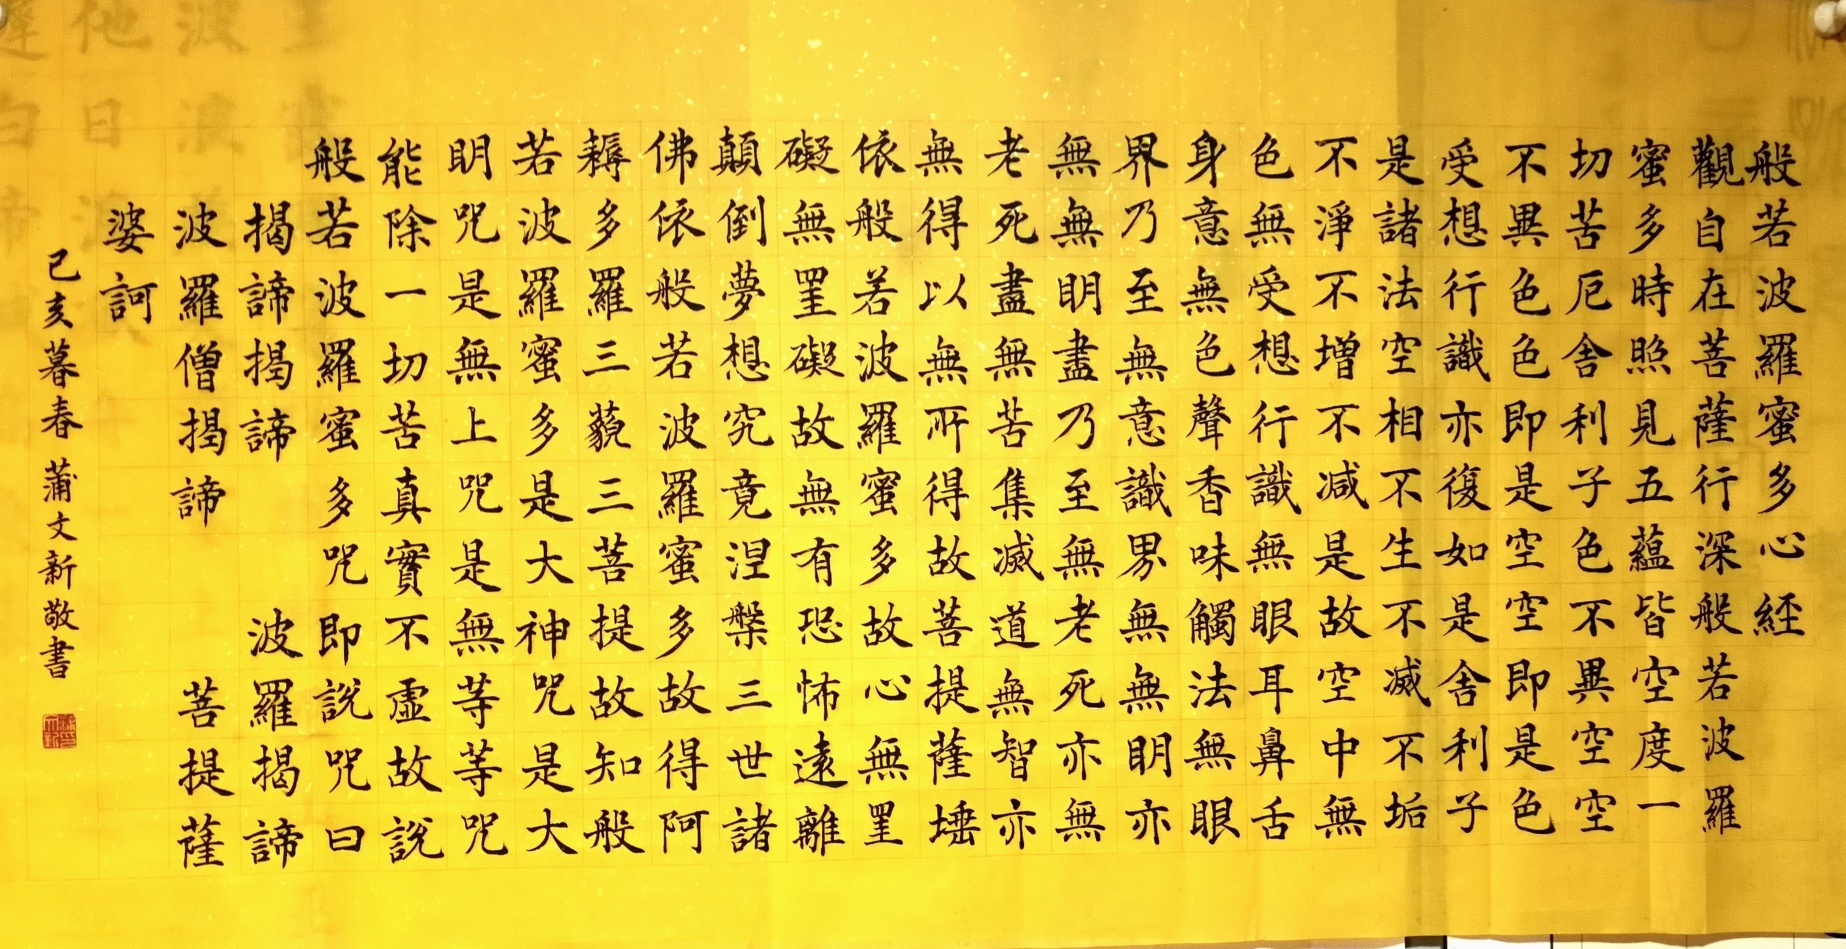 般若波羅蜜多心經
觀自在菩薩行深般若波羅
蜜多時照見五蘊皆空度一
切苦厄舍利子色不異空空
不異色色即是空空即是色
受想行識亦復如是舍利子
是諸法空相不生不滅不垢
不淨不增不減是故空中無
色無受想行識無眼耳鼻舌
身意無色聲香味觸法無眼
界乃至無意識界無無明亦
無無明盡乃至無老死亦無
老死盡無苦集滅道無智亦
無得以無所得故菩提薩埵
依般若波羅蜜多故心無罣
礙無罣礙故無有恐怖遠離
顛倒夢想究竟涅槃三世諸
佛依般若波羅蜜多故得阿
耨多羅三藐三菩提故知般
若波羅蜜多是大神咒是大
明咒是無上咒是無等等咒
能除一切苦真實不虛故說
般若波羅蜜多咒即說咒曰
揭諦揭諦 波羅揭諦
波羅僧揭諦 菩提薩
婆訶
己亥暮春 蒲文新敬書